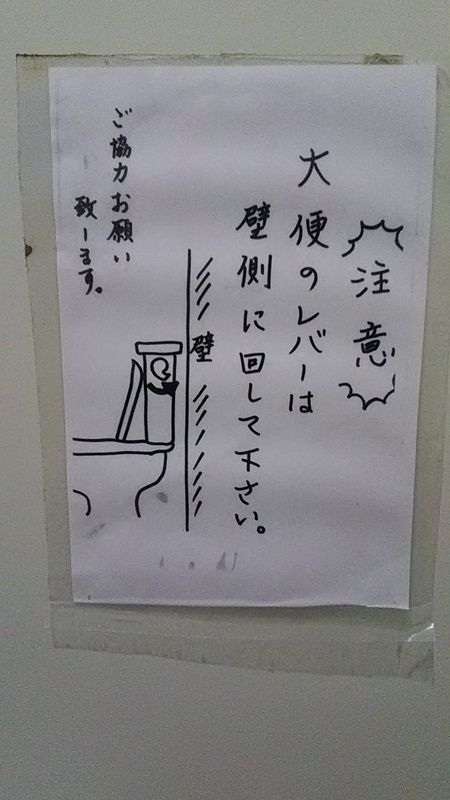 注意
大便のレバーは
壁側に回して下さい。
壁
ご協力お願い
致します。